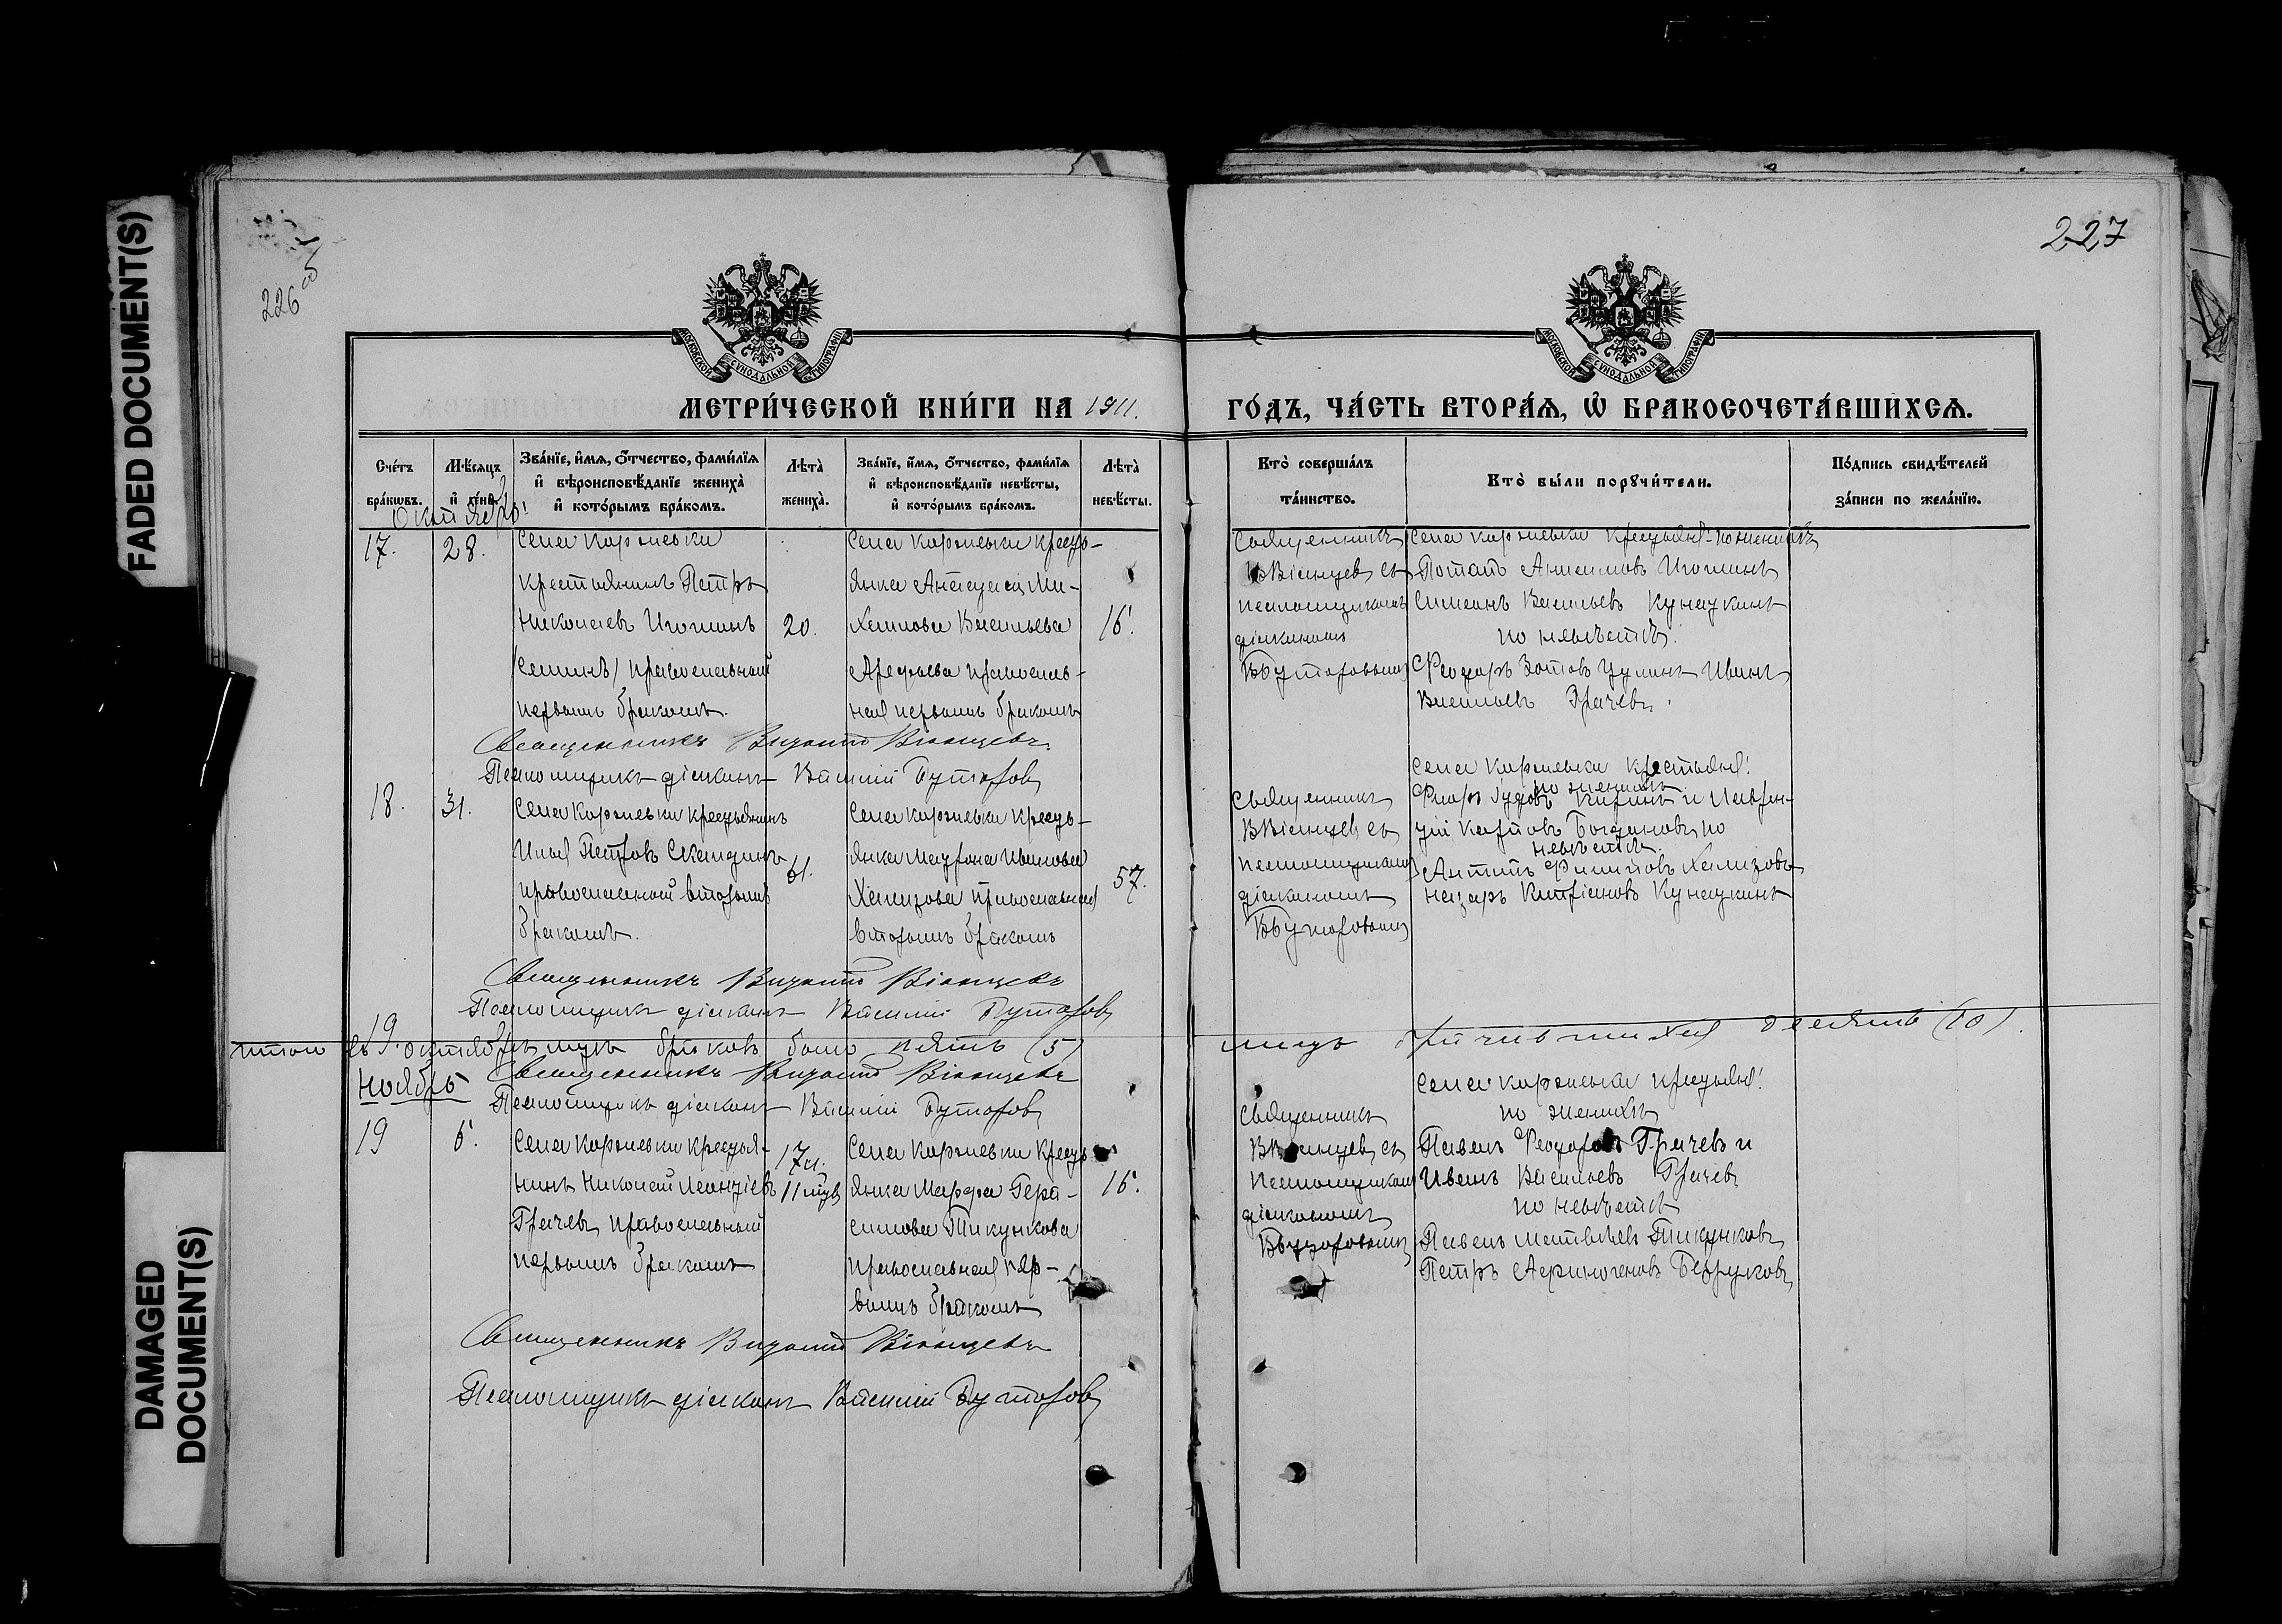 FADED DOCUMENT(S)
DAMAGED
DOCUMENT(S)
226 об
227
МОСКОВСКОЙ СѴНОДАЛЬНОЙ ТИПОГРАФІИ
МОСКОВСКОЙ СѴНОДАЛЬНОЙ ТИПОГРАФІИ
МЕТРИ́ЧЕСКОЙ КНИ́ГИ НА 1911.
ГО́ДЪ, ЧА́СТЬ ВТОРА́Я, Ѡ҆ БРАКОСОЧЕТА́ВШИХСЯ.
Сче́тъ бра́кѡвъ.
Мѣ́сяцъ и҆ де́нь.
Зва́нїе, и҆́мя, ѻ҆́тчество, фами́лїя и҆ вѣроисповѣ́данїе жениха̀ и҆ кото́рымъ бра́комъ.
Лѣта̀ жениха̀.
Зва́нїе, и҆́мя, ѻ҆́тчество, фами́лїя и҆ вѣроисповѣ́данїе невѣ́сты, и҆ кото́рымъ бра́комъ.
Лѣта̀ невѣ́сты.
Кто̀ соверша́лъ та́инство.
Кто̀ бы́ли порꙋчи́тели.
По́дпись свидѣ́телей за́писи по жела́нїю.
Октябрь
17.
28.
Села Коржевки
крестьянинъ Петръ
Николаевъ Игошинъ
православный
первымъ бракомъ.
20.
Села Коржевки кресть-
янка
Васильева
Арефьева православ-
ная первымъ бракомъ
16.
Священникъ
В Віанцев съ
псаломщикомъ
діакономъ
В Бутаровымъ
Села Коржевки крестьяне: по женихѣ
Потапъ Игошинъ
Симеонъ Васильевъ Кунаукинъ
по невѣстѣ:
Феодоръ Зотовъ Чулинъ Иванъ
Васильевъ Грачевъ.
Священникъ Віанцевъ
Псаломщикъ діаконъ Василій Бутаров
18.
31.
Села Коржевки крестьянинъ
Илья Петровъ Скандинъ
православный вторымъ
бракомъ.
61.
Села Коржевки кресть-
янка Матрона Иванова
Хализова православная
вторымъ бракомъ
57.
Священникъ
В Віанцев съ
псаломщикомъ
діакономъ
В Бутаровымъ
Села Коржевки крестьяне:
по женихѣ
Карповъ Богдановъ по
невѣстѣ
Антипъ Филиповъ Хализовъ
Назаръ Кипріановъ Кунаукинъ
Священникъ Віанцевъ
Псаломщикъ діаконъ Василій Бутаров
19.
Итого въ октябрѣ мѣсяцѣ браковъ было пять (5)
лицъ десять (10).
Священникъ Віанцевъ
Псаломщикъ діаконъ Василій Бутаров
Ноябрь
19
6.
Села Коржевки крестья-
нинъ Николай Леонтіевъ
Грачевъ православный
первымъ бракомъ
17 л.
11 мѣс
Села Коржевки кресть-
янка Марфа Гера-
симова Тикункова
православная пер-
вымъ бракомъ
16.
Священникъ
В Віанцев съ
псаломщикомъ
діакономъ
В Бутаровымъ
Села Коржевки крестьяне:
по женихѣ
Павелъ Феодоровъ Грачевъ и
Иванъ Васильевъ Грачевъ
по невѣстѣ
Павелъ Матвѣевъ Тикунковъ
Петръ Афиногеновъ
Священникъ Віанцевъ
Псаломщикъ діаконъ Василій Бутаров